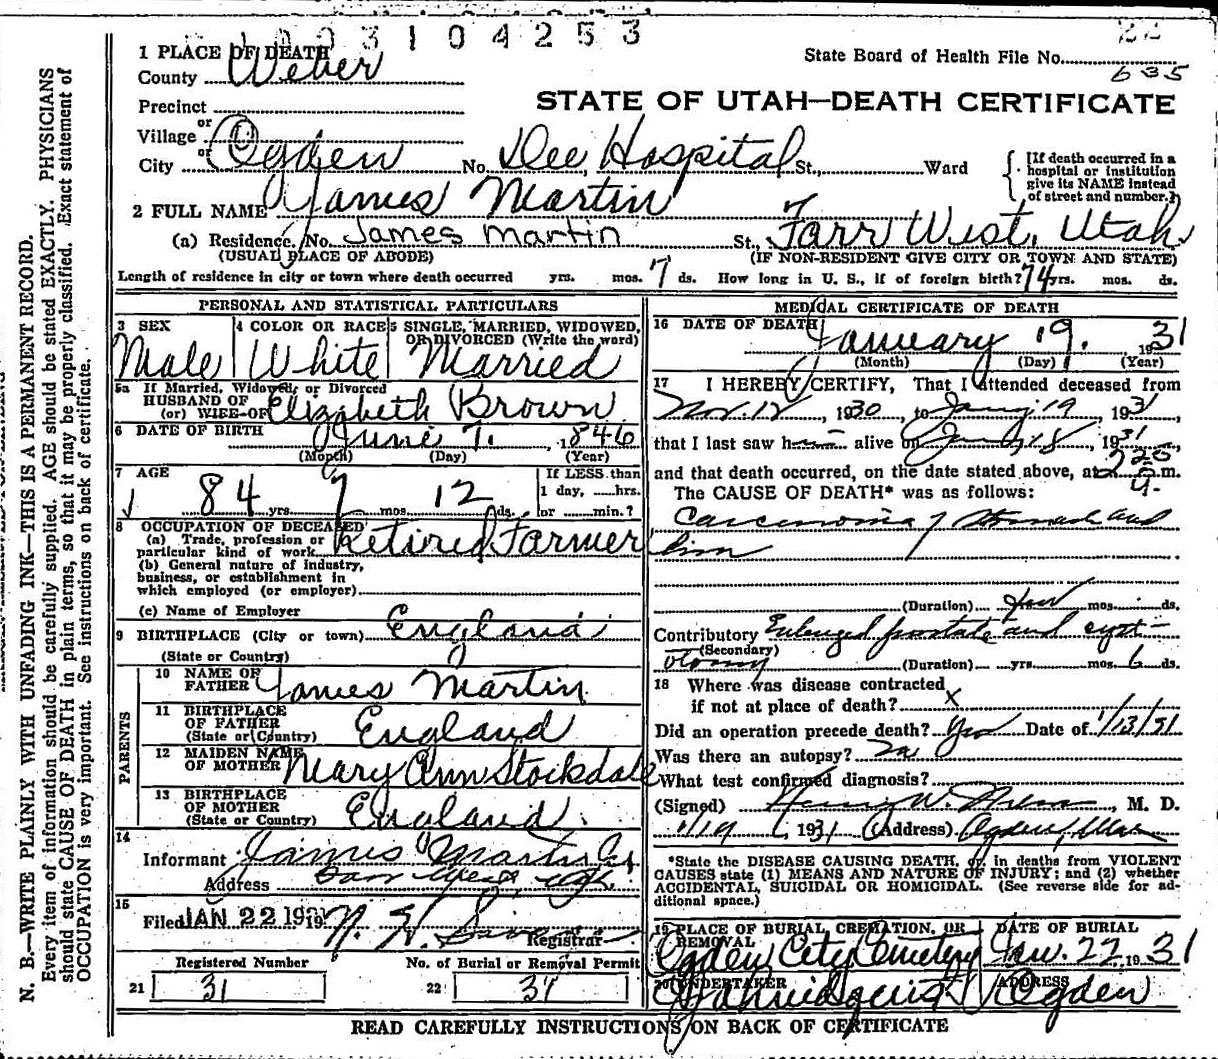 1 0 0 3 1 0 4 2 5 3
22
1 PLACE OF DEATH
State Board of Health File No.
County Weber
635
Precinct
STATE OF UTAH—DEATH CERTIFICATE
or
Village
or
City Ogden No. Dee Hospital St., Ward
[If death occurred in a
hospital or institution
give its NAME instead
of street and number.]
2 FULL NAME James Martin
(a) Residence. No. James Martin St., Farr West, Utah
(USUAL PLACE OF ABODE) (IF NON-RESIDENT GIVE CITY OR TOWN AND STATE)
Length of residence in city or town where death occurred yrs. mos. 7 ds. How long in U. S., if of foreign birth? 74 yrs. mos. ds.
PERSONAL AND STATISTICAL PARTICULARS
3 SEX
Male
4 COLOR OR RACE
White
5 SINGLE, MARRIED, WIDOWED,
OR DIVORCED (Write the word)
Married
5a If Married, Widowed, or Divorced
HUSBAND OF
(or) WIFE OF Elizabeth Brown
6 DATE OF BIRTH June 7. 1846
(Month) (Day) (Year)
7 AGE
84 yrs. 7 mos. 12 ds.
If LESS than
1 day, hrs.
or min.?
8 OCCUPATION OF DECEASED
(a) Trade, profession or
particular kind of work Retired Farmer
(b) General nature of industry,
business, or establishment in
which employed (or employer)
(c) Name of Employer
9 BIRTHPLACE (City or town) England
(State or Country)
PARENTS
10 NAME OF
FATHER James Martin
11 BIRTHPLACE
OF FATHER
(State or Country) England
12 MAIDEN NAME
OF MOTHER Mary Ann Stockdale
13 BIRTHPLACE
OF MOTHER
(State or Country) England
14
Informant James Martin Jr
Address Farr West, Utah
15
Filed JAN 22 1931 19
Registrar
Registered Number
21 31
No. of Burial or Removal Permit
22 37
MEDICAL CERTIFICATE OF DEATH
16 DATE OF DEATH
January 19. 1931
(Month) (Day) (Year)
17 I HEREBY CERTIFY, That I attended deceased from
Nov. 12, 1930, to Jany 19, 1931,
that I last saw him alive on Jany 18, 1931,
and that death occurred, on the date stated above, at 2 20 a. m.
The CAUSE OF DEATH* was as follows:
Carcinoma of stomach and
liver
(Duration) few mos. ds.
Contributory Enlarged prostate and cyst-
(Secondary)
otomy (Duration) yrs. mos. 6 ds.
18 Where was disease contracted
if not at place of death? X
Did an operation precede death? Yes Date of 1/13/31
Was there an autopsy? No
What test confirmed diagnosis?
(Signed) Henry W. , M. D.
1/19, 1931 (Address) Ogden, Utah
*State the DISEASE CAUSING DEATH, or, in deaths from VIOLENT
CAUSES state (1) MEANS AND NATURE OF INJURY; and (2) whether
ACCIDENTAL, SUICIDAL OR HOMICIDAL. (See reverse side for ad-
ditional space.)
19 PLACE OF BURIAL, CREMATION, OR
REMOVAL
Ogden City Cemetery
DATE OF BURIAL
Jan. 22, 1931
20 UNDERTAKER
ADDRESS
Ogden
READ CAREFULLY INSTRUCTIONS ON BACK OF CERTIFICATE
N. B.—WRITE PLAINLY WITH UNFADING INK—THIS IS A PERMANENT RECORD.
Every item of information should be carefully supplied. AGE should be stated EXACTLY. PHYSICIANS
should state CAUSE OF DEATH in plain terms, so that it may be properly classified. Exact statement of
OCCUPATION is very important. See instructions on back of certificate.